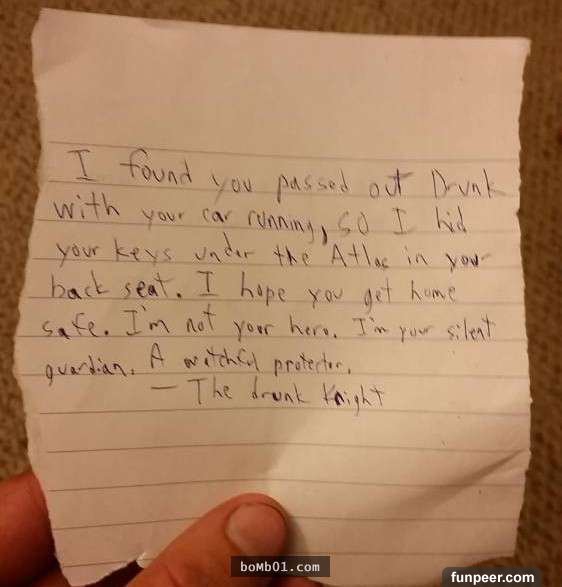 I found you passed out Drunk
with your car running, so I hid
your keys under the Atlas in your
back seat. I hope you get home
safe. I'm not your hero. I'm your silent
guardian. A watchful protector.
— The drunk Knight
boMb01.com
funpeer.com